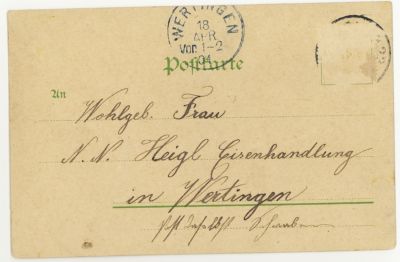 WERTINGEN
18
APR
Vor. 1-2
04
Postkarte
An
Wohlgeb. Frau
N. N. Heigl Eisenhandlung
in Wertingen
Post daselbst Schwaben